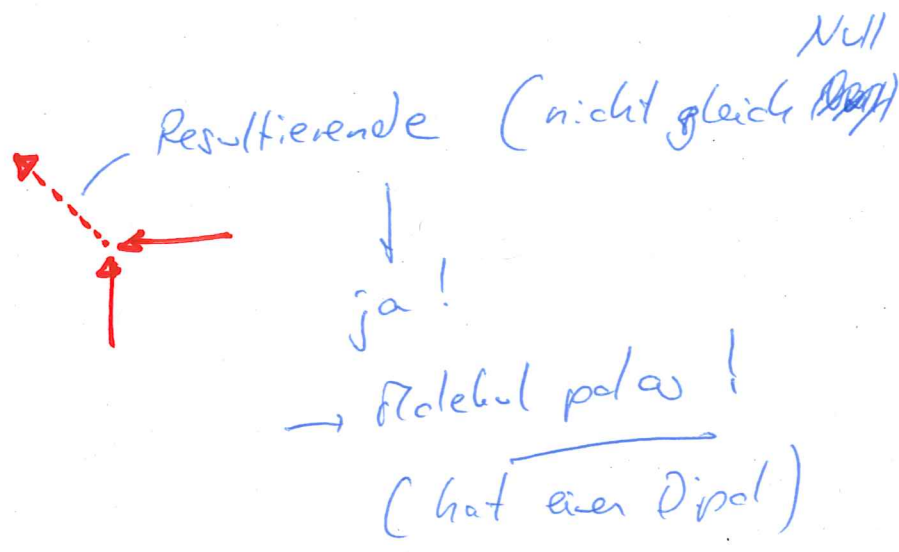 Null
Resultierende (nicht gleich
ja!
→ Molekül polar!
(hat einen Dipol)